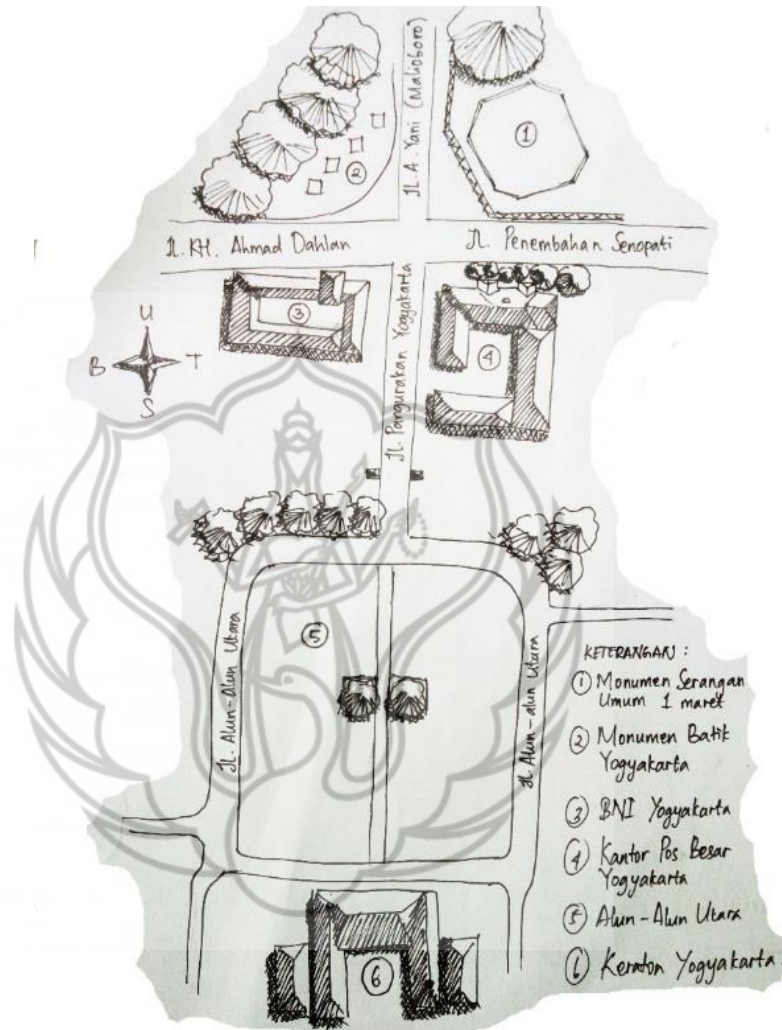 Jl. A. Yani (Malioboro)
①
②
Jl. KH. Ahmad Dahlan
Jl. Penembahan Senopati
③
Jl. Pangurakan Yogyakarta
④
U
B T
S
⑤
Jl. Alun-Alun Utara
Jl. Alun-alun Utara
KETERANGAN :
① Monumen Serangan
Umum 1 maret
② Monumen Batik
Yogyakarta
③ BNI Yogyakarta
④ Kantor Pos Besar
Yogyakarta
⑤ Alun-Alun Utara
⑥ Keraton Yogyakarta
⑥